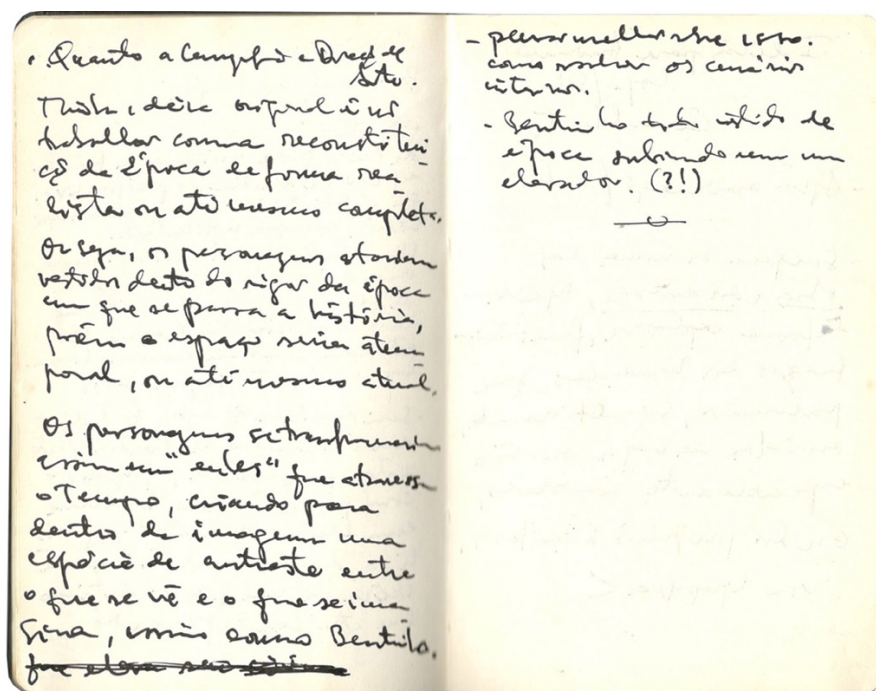 . Quanto a concepção e Direção de
Arte.
Tinha a ideia original de não
trabalhar com uma reconstitui-
ção de Época de forma rea-
lista ou até mesmo completa.
Ou seja, os personagens estariam
vestidos dentro do rigor da época
em que se passa a história,
porém o espaço seria atem-
poral, ou até mesmo atual.
Os personagens se transformariam
assim em "entes" que atravessam
o Tempo, criando para
dentro da imagem uma
espécie de contraste entre
o que se vê e o que se ima-
gina, assim como Bentinho.
- pensar melhor sobre isso.
como resolver os cenários
internos.
- Bentinho todo vestido de
época subindo em um
elevador. (?!)